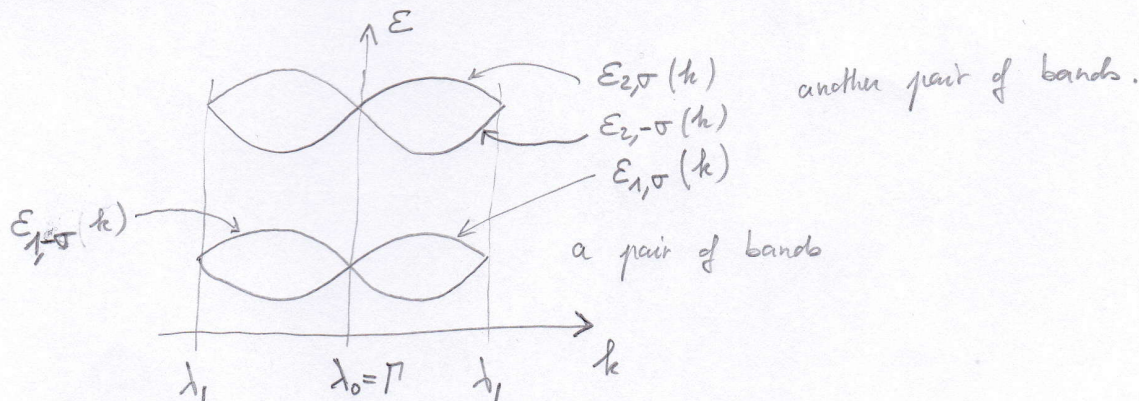 ε
ε₂,σ(k) another pair of bands.
ε₂,-σ(k)
ε₁,σ(k)
ε₁,-σ(k)
a pair of bands
k
λ₁ λ₀=Γ λ₁